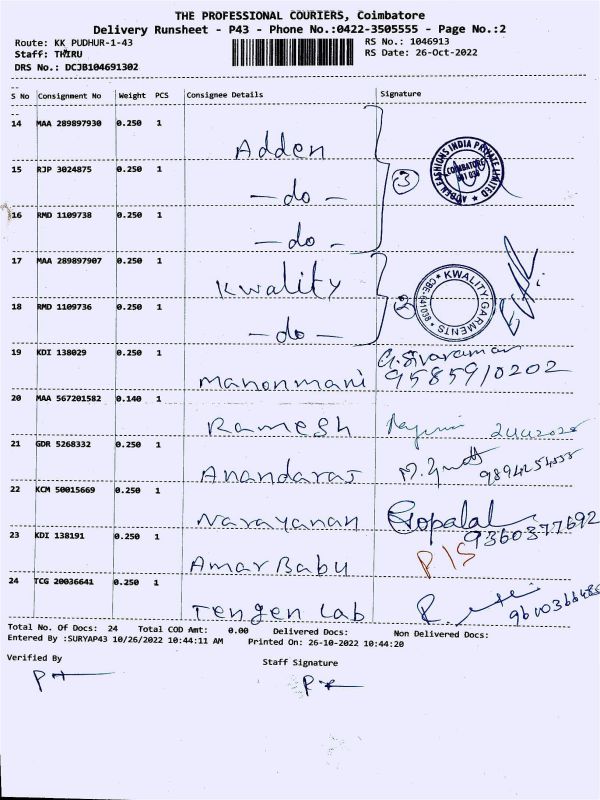 THE PROFESSIONAL COURIERS, Coimbatore
Delivery Runsheet - P43 - Phone No.:0422-3505555 - Page No.:2
Route: KK PUDHUR-1-43 RS No.: 1046913
Staff: THIRU RS Date: 26-Oct-2022
DRS No.: DCJB104691302
S No Consignment No Weight PCS Consignee Details Signature
14 MAA 289897930 0.250 1 Adden
15 RJP 3024875 0.250 1 - do - 3 ADDEN FASHIONS INDIA PRIVATE LIMITED COIMBATORE
16 RMD 1109738 0.250 1 - do -
17 MAA 289897907 0.250 1 Kwality KWALITY GARMENTS
18 RMD 1109736 0.250 1 - do -
19 KDI 138029 0.250 1 Manonmani G. Sivaraman 9585910202
20 MAA 567201582 0.140 1 Ramesh
21 GDR 5268332 0.250 1 Anandaraj
22 KCM 50015669 0.250 1 Narayanan Gopalal 9360377692
23 KDI 138191 0.250 1 Amar Babu P/S
24 TCG 20036641 0.250 1 Tengen Lab
Total No. Of Docs: 24 Total COD Amt: 0.00 Delivered Docs: Non Delivered Docs:
Entered By :SURYAP43 10/26/2022 10:44:11 AM Printed On: 26-10-2022 10:44:20
Verified By Staff Signature